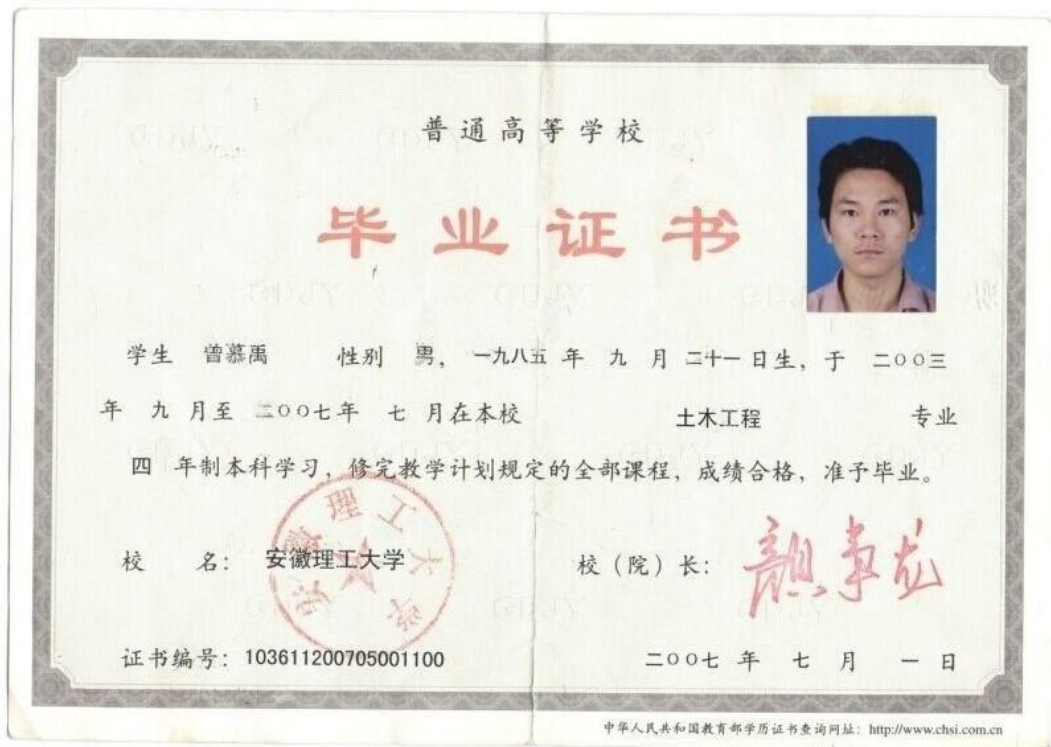 普通高等学校
毕业证书
学生 曾慕禹 性别 男，一九八五 年 九 月 二十一 日生，于 二〇〇三
年 九 月至 二〇〇七年 七 月在本校 土木工程 专业
四 年制本科学习，修完教学计划规定的全部课程，成绩合格，准予毕业。
校 名： 安徽理工大学 校（院）长：
安徽理工大学
证书编号：103611200705001100 二〇〇七 年 七 月 一 日
中华人民共和国教育部学历证书查询网址：http://www.chsi.com.cn